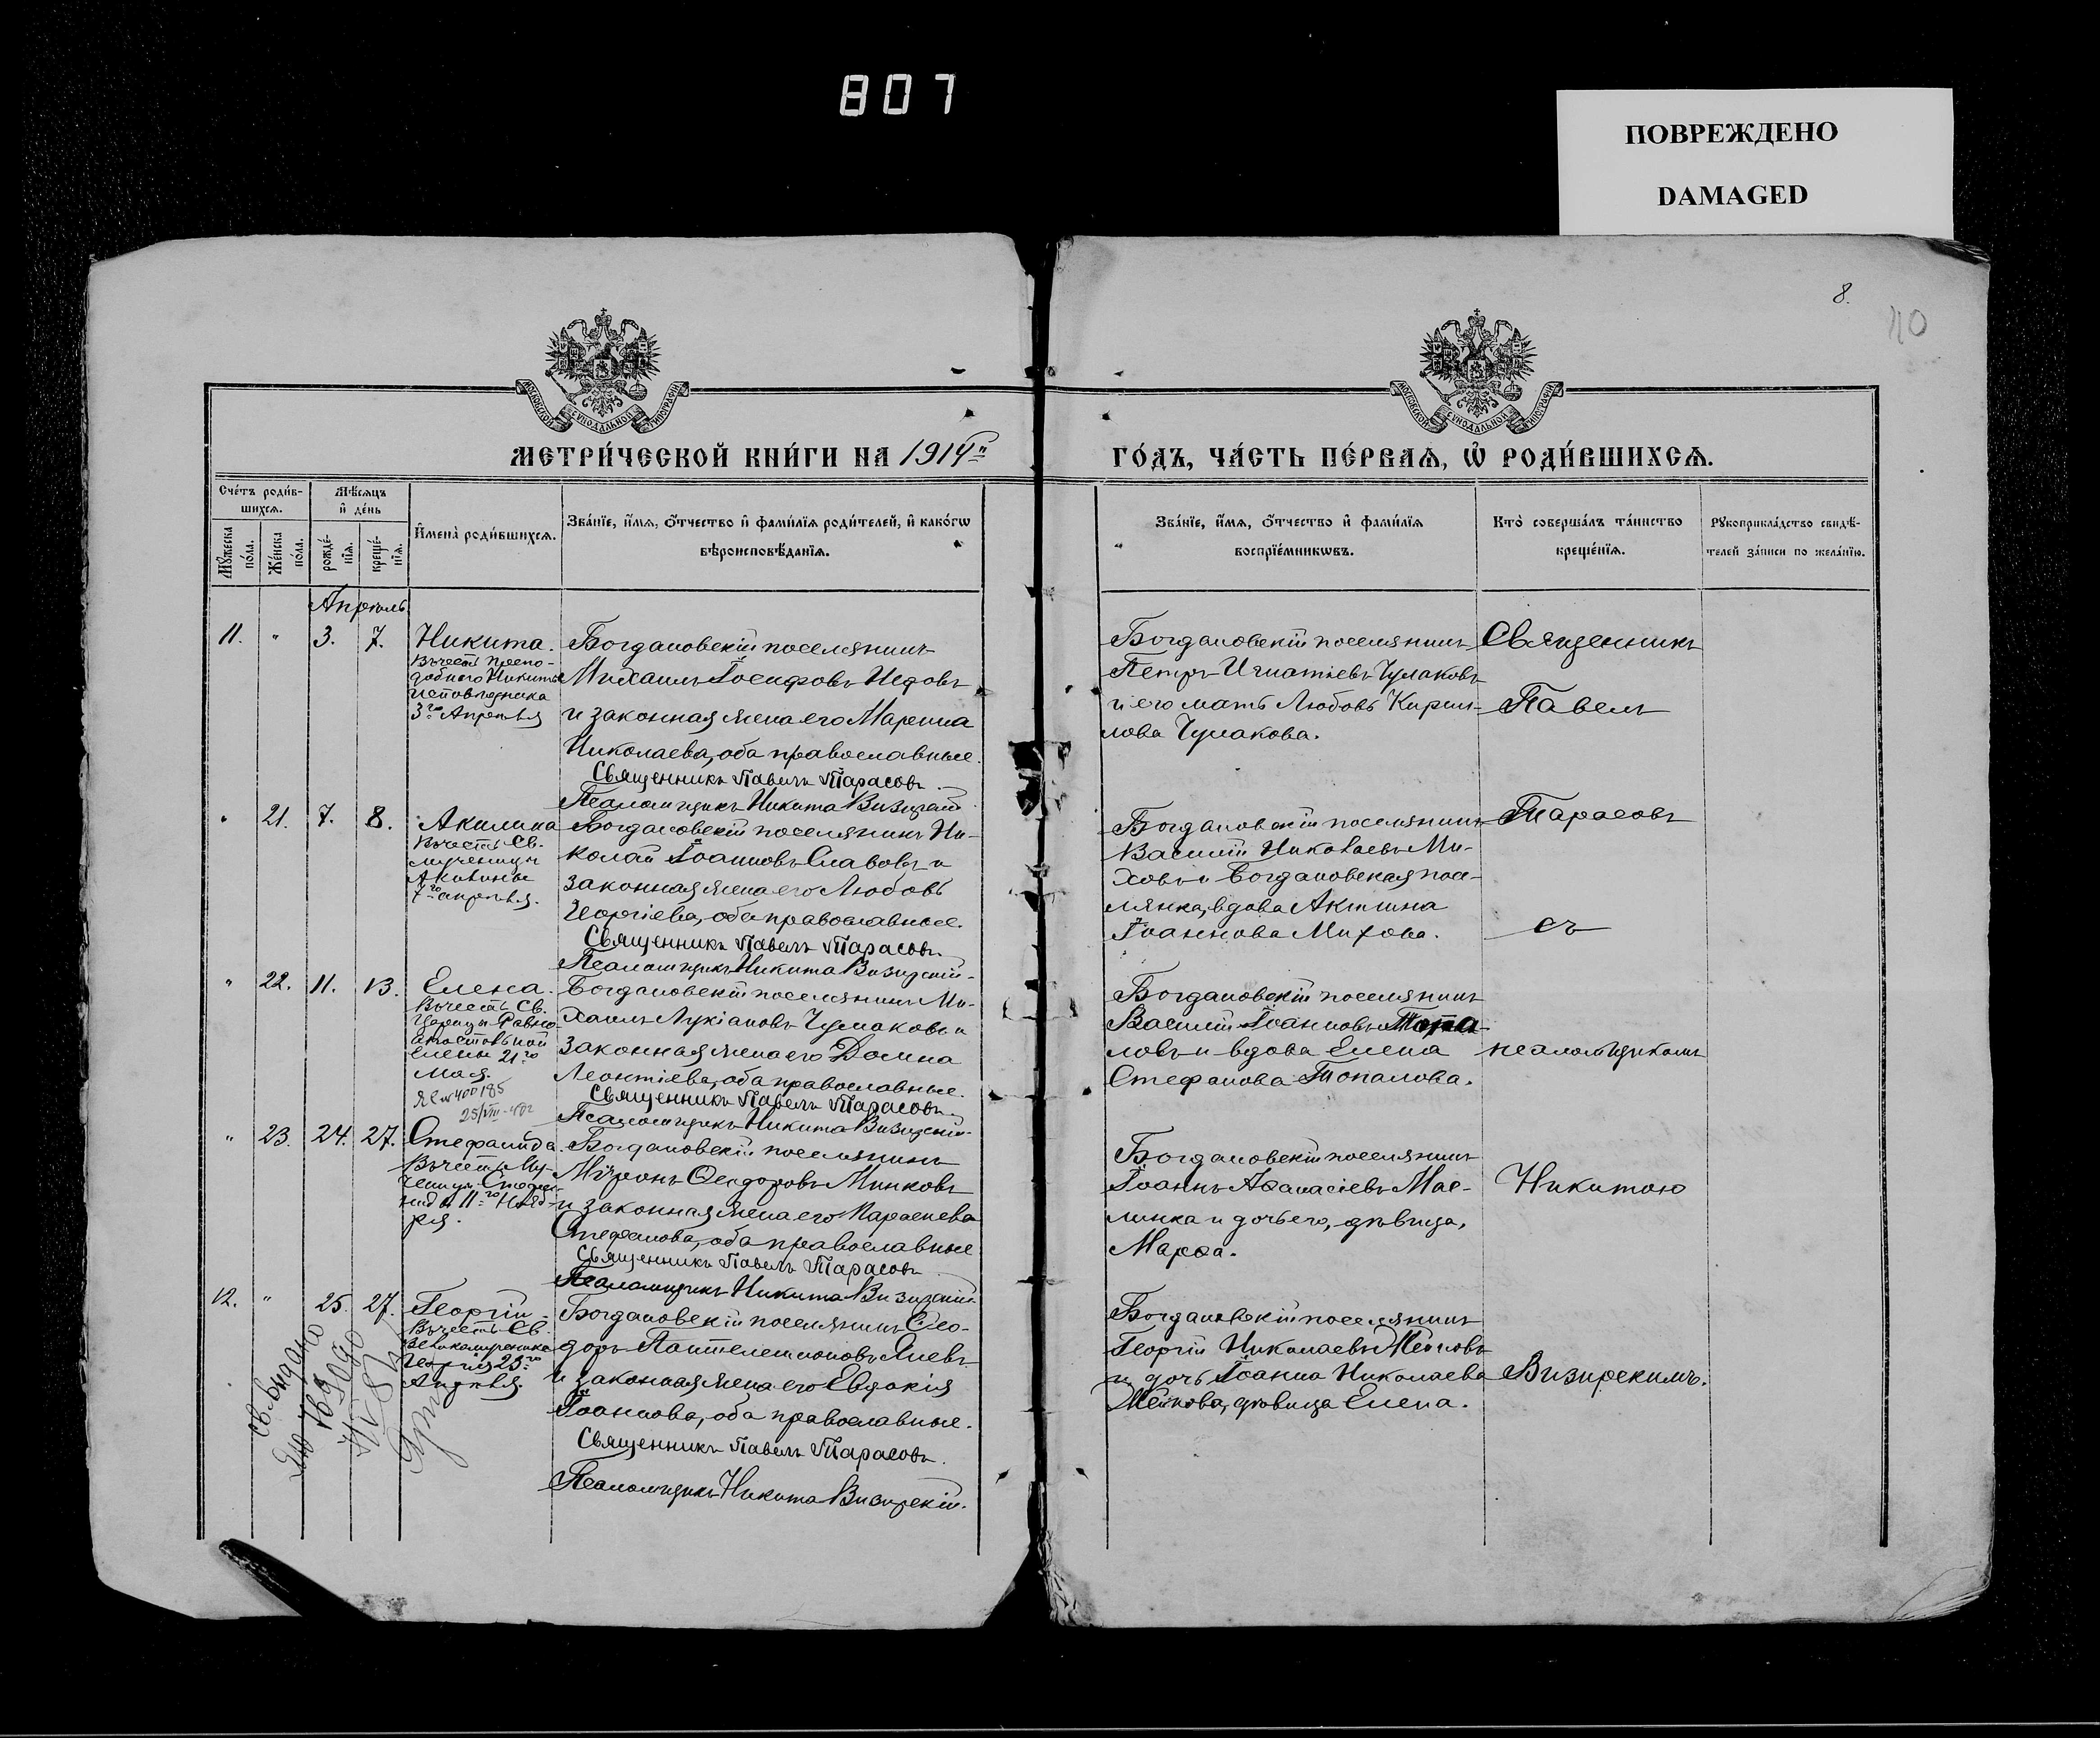 807
ПОВРЕЖДЕНО
DAMAGED
8.
МОСКОВСКОЙ СѴНОДАЛЬНОЙ ТИПОГРАФІИ
МОСКОВСКОЙ СѴНОДАЛЬНОЙ ТИПОГРАФІИ
МЕТРИ́ЧЕСКОЙ КНИ́ГИ НА 1914й
ГО́ДЪ, ЧА́СТЬ ПЕ́РВАѦ, Ѡ҆ РОДИ́ВШИХСѦ.
Сче́тъ роди́в-
шихсѧ.
Мꙋ́жеска по́ла.
Же́нска по́ла.
Мѣ́сѧцъ
и҆ де́нь
рожде́-
нїѧ.
креще́-
нїѧ.
И҆мена̀ роди́вшихсѧ.
Зва́нїе, и҆́мѧ, ѻ҆́тчество и҆ фами́лїѧ роди́телей, и҆ како́гѡ
вѣроисповѣ́данїѧ.
Зва́нїе, и҆́мѧ, ѻ҆́тчество и҆ фами́лїѧ
воспрїе́мникѡвъ.
Кто̀ соверша́лъ та́инство
креще́нїѧ.
Рꙋкоприкла́дство свидѣ́-
телей за́писи по жела́нїю.
Апрѣль
11. " 3. 7.
Никита.
Въ честь препо-
добнаго Никиты
исповѣдника
3го Апрѣля
Богдановскій поселянинъ
Михаилъ Іосифовъ Недовъ
и законная жена его Марина
Николаева, оба православные.
Священникъ Павелъ Тарасовъ
Псаломщикъ Никита Визирскій
Богдановскій поселянинъ
Петръ Игнатіевъ Чумаковъ
и его мать Любовь Кирил-
лова Чумакова.
Священникъ
Павелъ
" 21. 7. 8.
Акилина
Въ честь Св.
мученицы
Акилины
7го апрѣля.
Богдановскій поселянинъ Ни-
колай Іоанновъ Славовъ и
законная жена его Любовь
Георгіева, оба православные.
Священникъ Павелъ Тарасовъ
Псаломщикъ Никита Визирскій.
Богдановскій поселянинъ
Василій Николаевъ Ми-
ховъ и Богдановская посе-
лянка, вдова Акилина
Іоаннова Михова.
Тарасовъ
съ
" 22. 11. 13.
Елена.
Въ честь Св.
Царицы Равно-
апостольной
Елены 21го
мая.
Богдановскій поселянинъ Ми-
хаилъ Лукіановъ Чумаковъ и
законная жена его Домна
Леонтіева, оба православные.
Священникъ Павелъ Тарасовъ
Псаломщикъ Никита Визирскій.
Богдановскій поселянинъ
Василій Іоанновъ Топа-
ловъ и вдова Елена
Стефанова Топалова.
псаломщикомъ
" 23. 24. 27.
Стефанида.
Въ честь Му-
ченицы Стефа-
ниды 11го Нояб-
ря.
Богдановскій поселянинъ
Мѵронъ Ѳеодоровъ Минковъ
и законная жена его Параскева
Стефанова, оба православные
Священникъ Павелъ Тарасовъ
Псаломщикъ Никита Визирскій.
Богдановскій поселянинъ
Іоаннъ Аѳанасіевъ Мас-
линка и дочь его, дѣвица,
Марѳа.
Никитою
12. " 25. 27.
Георгій
Въ честь Св.
Великомученика
Георгія 23го
Апрѣля.
Богдановскій поселянинъ Ѳео-
доръ Пантелеимоновъ Яневъ
и законная жена его Евдокія
Іоаннова, оба православные.
Священникъ Павелъ Тарасовъ.
Псаломщикъ Никита Визирскій.
Богдановскій поселянинъ
Георгій Николаевъ Желковъ
и дочь Іоанна Николаева
Желкова, дѣвица Елена.
Визирскимъ.